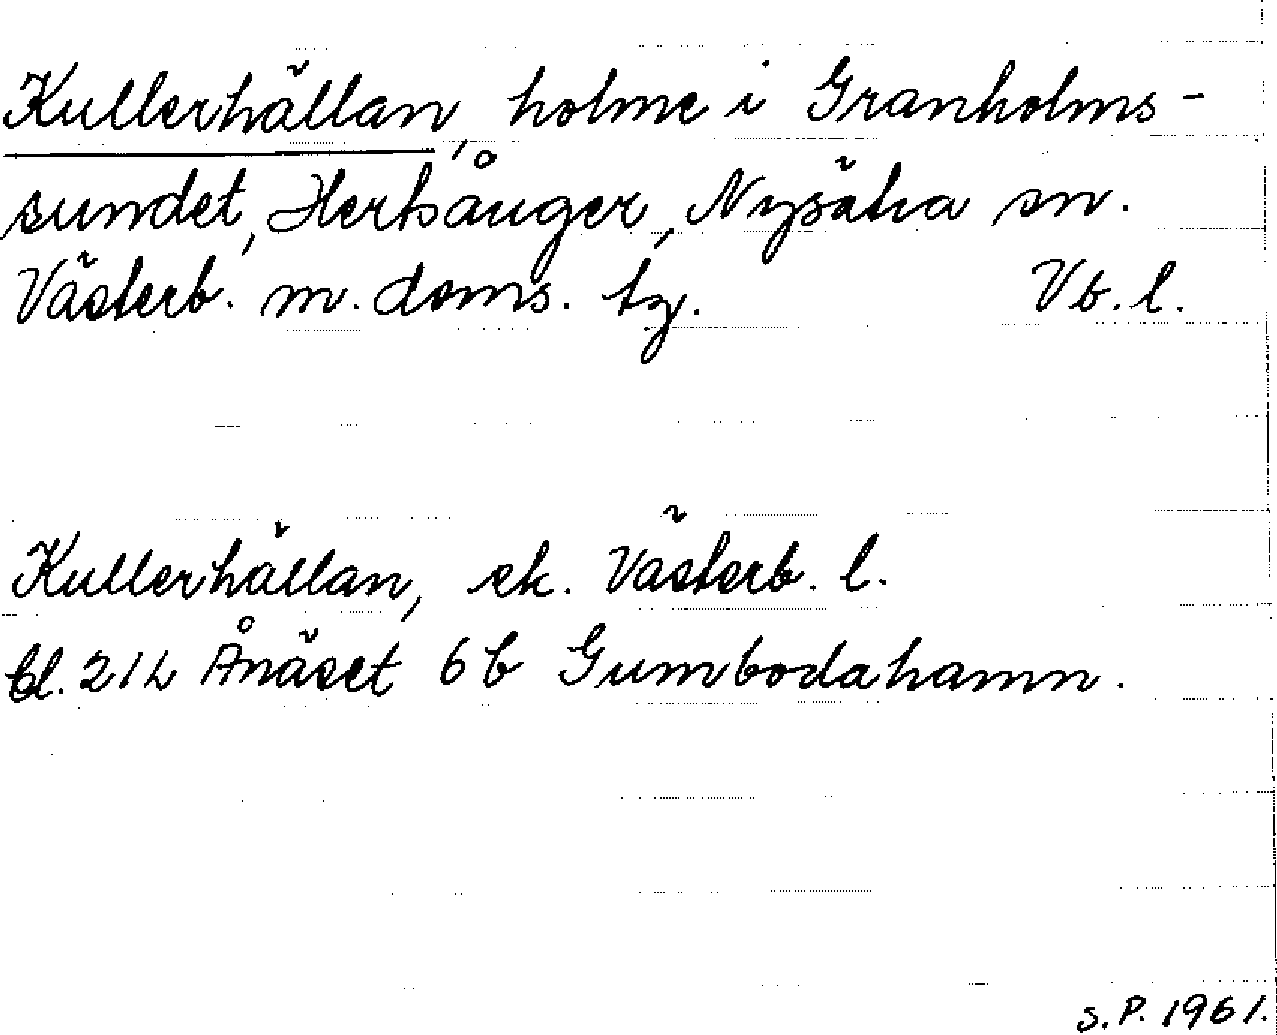 Kullerhällan, holme i Granholms-
sundet, Hertsånger, Nysätra sn.
Västerb. m. doms. tg. Vb. l.
Kullerhällan, ek. Västerb. l.
bl. 21L Ånäset 6b Gumbodahamn.
S.P. 1961.